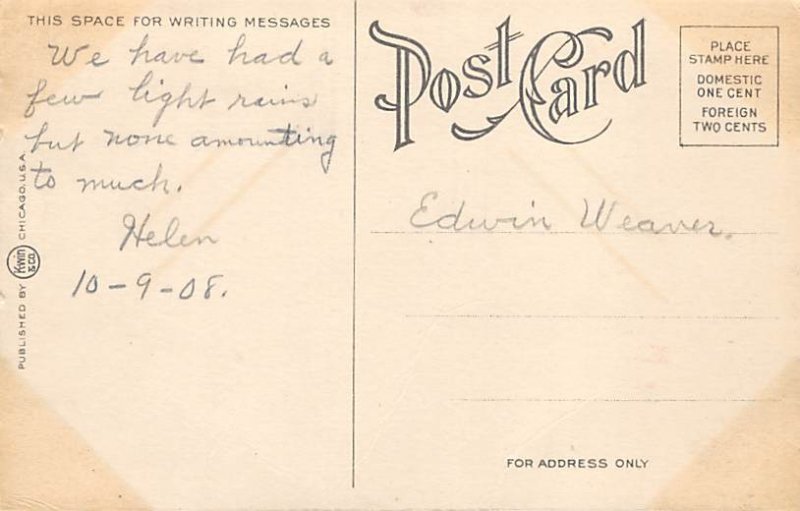 THIS SPACE FOR WRITING MESSAGES
We have had a
few light rains
but none amounting
to much.
Helen
10-9-08.
PUBLISHED BY Kwin & CO. CHICAGO, U.S.A.
Post Card
PLACE
STAMP HERE
DOMESTIC
ONE CENT
FOREIGN
TWO CENTS
Edwin Weaver.
FOR ADDRESS ONLY